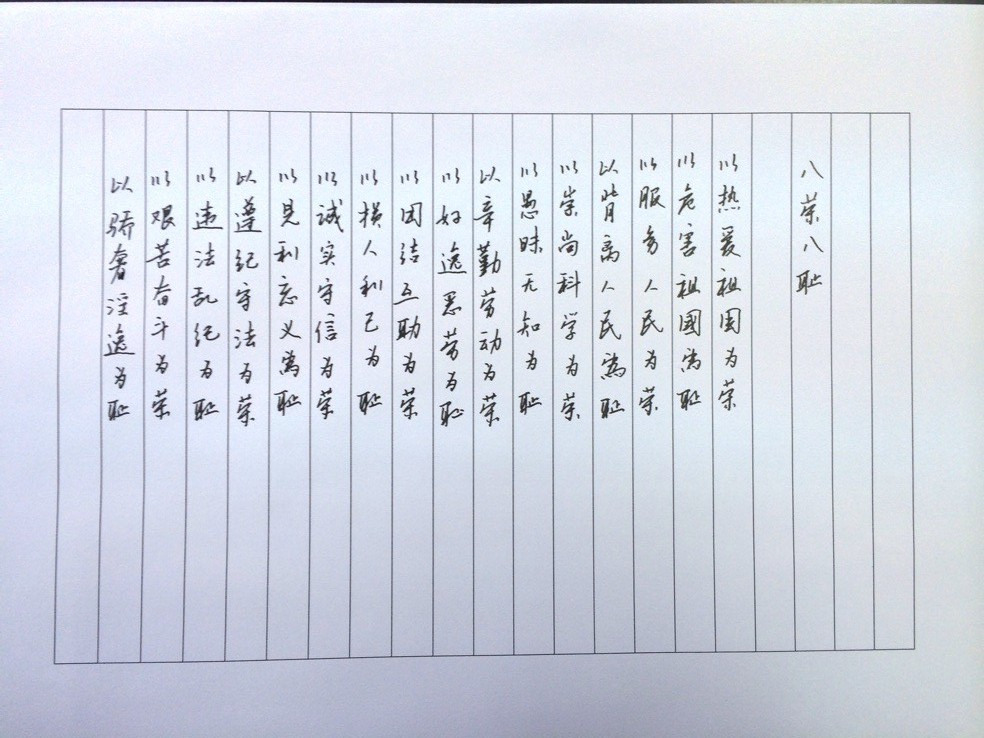 八荣八耻
以热爱祖国为荣
以危害祖國為耻
以服务人民为荣
以背离人民為耻
以崇尚科学为荣
以愚昧无知为耻
以辛勤劳动为荣
以好逸恶劳为耻
以团结互助为荣
以损人利己为耻
以诚实守信为荣
以見利忘义為耻
以遵纪守法为荣
以违法乱纪为耻
以艰苦奋斗为荣
以骄奢淫逸为耻